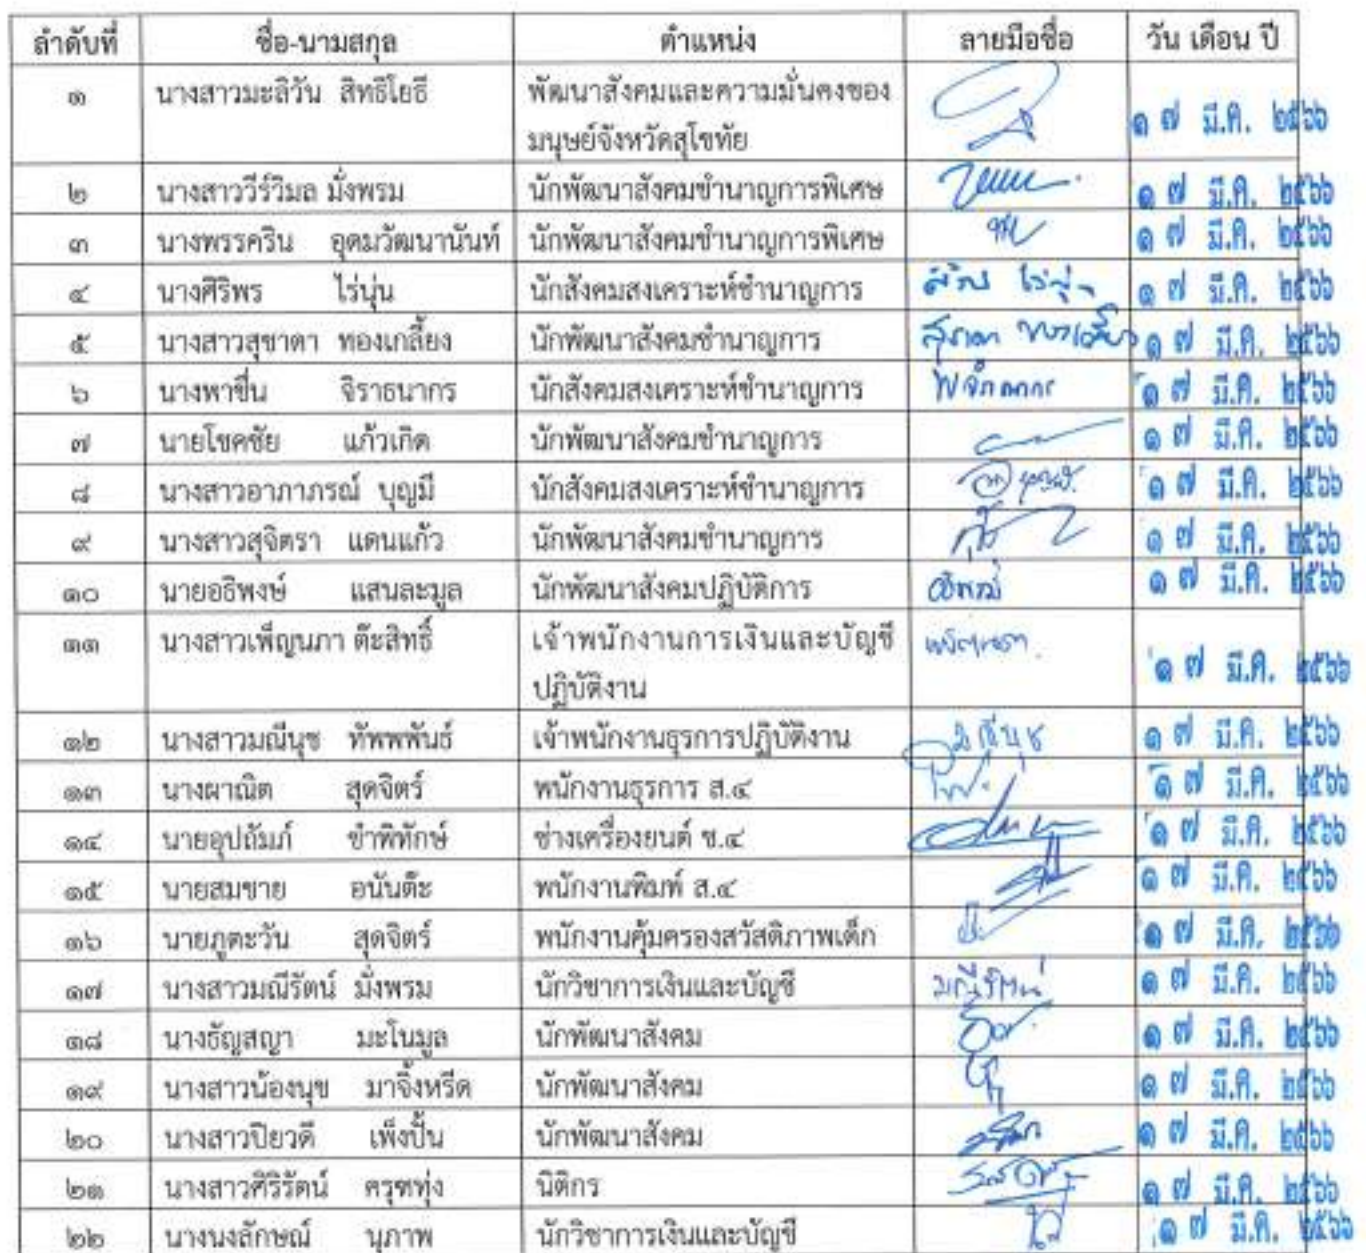 ลำดับที่ ชื่อ-นามสกุล ตำแหน่ง ลายมือชื่อ วัน เดือน ปี
๑ นางสาวมะลิวัน สิทธิโยธี พัฒนาสังคมและความมั่นคงของ ๑ ๗ มี.ค. ๒๕๖๖
มนุษย์จังหวัดสุโขทัย
๒ นางสาววีร์วิมล มั่งพรม นักพัฒนาสังคมชำนาญการพิเศษ ๑ ๗ มี.ค. ๒๕๖๖
๓ นางพรรคริน อุดมวัฒนานันท์ นักพัฒนาสังคมชำนาญการพิเศษ ๑ ๗ มี.ค. ๒๕๖๖
๔ นางศิริพร ไร่นุ่น นักสังคมสงเคราะห์ชำนาญการ ๑ ๗ มี.ค. ๒๕๖๖
๕ นางสาวสุชาดา ทองเกลี้ยง นักพัฒนาสังคมชำนาญการ ๑ ๗ มี.ค. ๒๕๖๖
๖ นางพาขึ้น จิราธนากร นักสังคมสงเคราะห์ชำนาญการ ๑ ๗ มี.ค. ๒๕๖๖
๗ นายโชคชัย แก้วเกิด นักพัฒนาสังคมชำนาญการ ๑ ๗ มี.ค. ๒๕๖๖
๘ นางสาวอาภาภรณ์ บุญมี นักสังคมสงเคราะห์ชำนาญการ ๑ ๗ มี.ค. ๒๕๖๖
๙ นางสาวสุจิตรา แดนแก้ว นักพัฒนาสังคมชำนาญการ ๑ ๗ มี.ค. ๒๕๖๖
๑๐ นายอธิพงษ์ แสนละมูล นักพัฒนาสังคมปฏิบัติการ ๑ ๗ มี.ค. ๒๕๖๖
๑๑ นางสาวเพ็ญนภา ต๊ะสิทธิ์ เจ้าพนักงานการเงินและบัญชี ๑ ๗ มี.ค. ๒๕๖๖
ปฏิบัติงาน
๑๒ นางสาวมณีนุช ทัพพพันธ์ เจ้าพนักงานธุรการปฏิบัติงาน มณีนุช ๑ ๗ มี.ค. ๒๕๖๖
๑๓ นางผาณิต สุดจิตร์ พนักงานธุรการ ส.๔ ๑ ๗ มี.ค. ๒๕๖๖
๑๔ นายอุปถัมภ์ ขำพิทักษ์ ช่างเครื่องยนต์ ช.๔ ๑ ๗ มี.ค. ๒๕๖๖
๑๕ นายสมชาย อนันต๊ะ พนักงานพิมพ์ ส.๔ ๑ ๗ มี.ค. ๒๕๖๖
๑๖ นายภูตะวัน สุดจิตร์ พนักงานคุ้มครองสวัสดิภาพเด็ก ๑ ๗ มี.ค. ๒๕๖๖
๑๗ นางสาวมณีรัตน์ มั่งพรม นักวิชาการเงินและบัญชี มณีรัตน์ ๑ ๗ มี.ค. ๒๕๖๖
๑๘ นางธัญสญา มะโนมูล นักพัฒนาสังคม ๑ ๗ มี.ค. ๒๕๖๖
๑๙ นางสาวน้องนุช มาจิ้งหรีด นักพัฒนาสังคม ๑ ๗ มี.ค. ๒๕๖๖
๒๐ นางสาวปิยวดี เพ็งปั้น นักพัฒนาสังคม ๑ ๗ มี.ค. ๒๕๖๖
๒๑ นางสาวศิริรัตน์ ครุฑทุ่ง นิติกร ๑ ๗ มี.ค. ๒๕๖๖
๒๒ นางนงลักษณ์ นุภาพ นักวิชาการเงินและบัญชี ๑ ๗ มี.ค. ๒๕๖๖